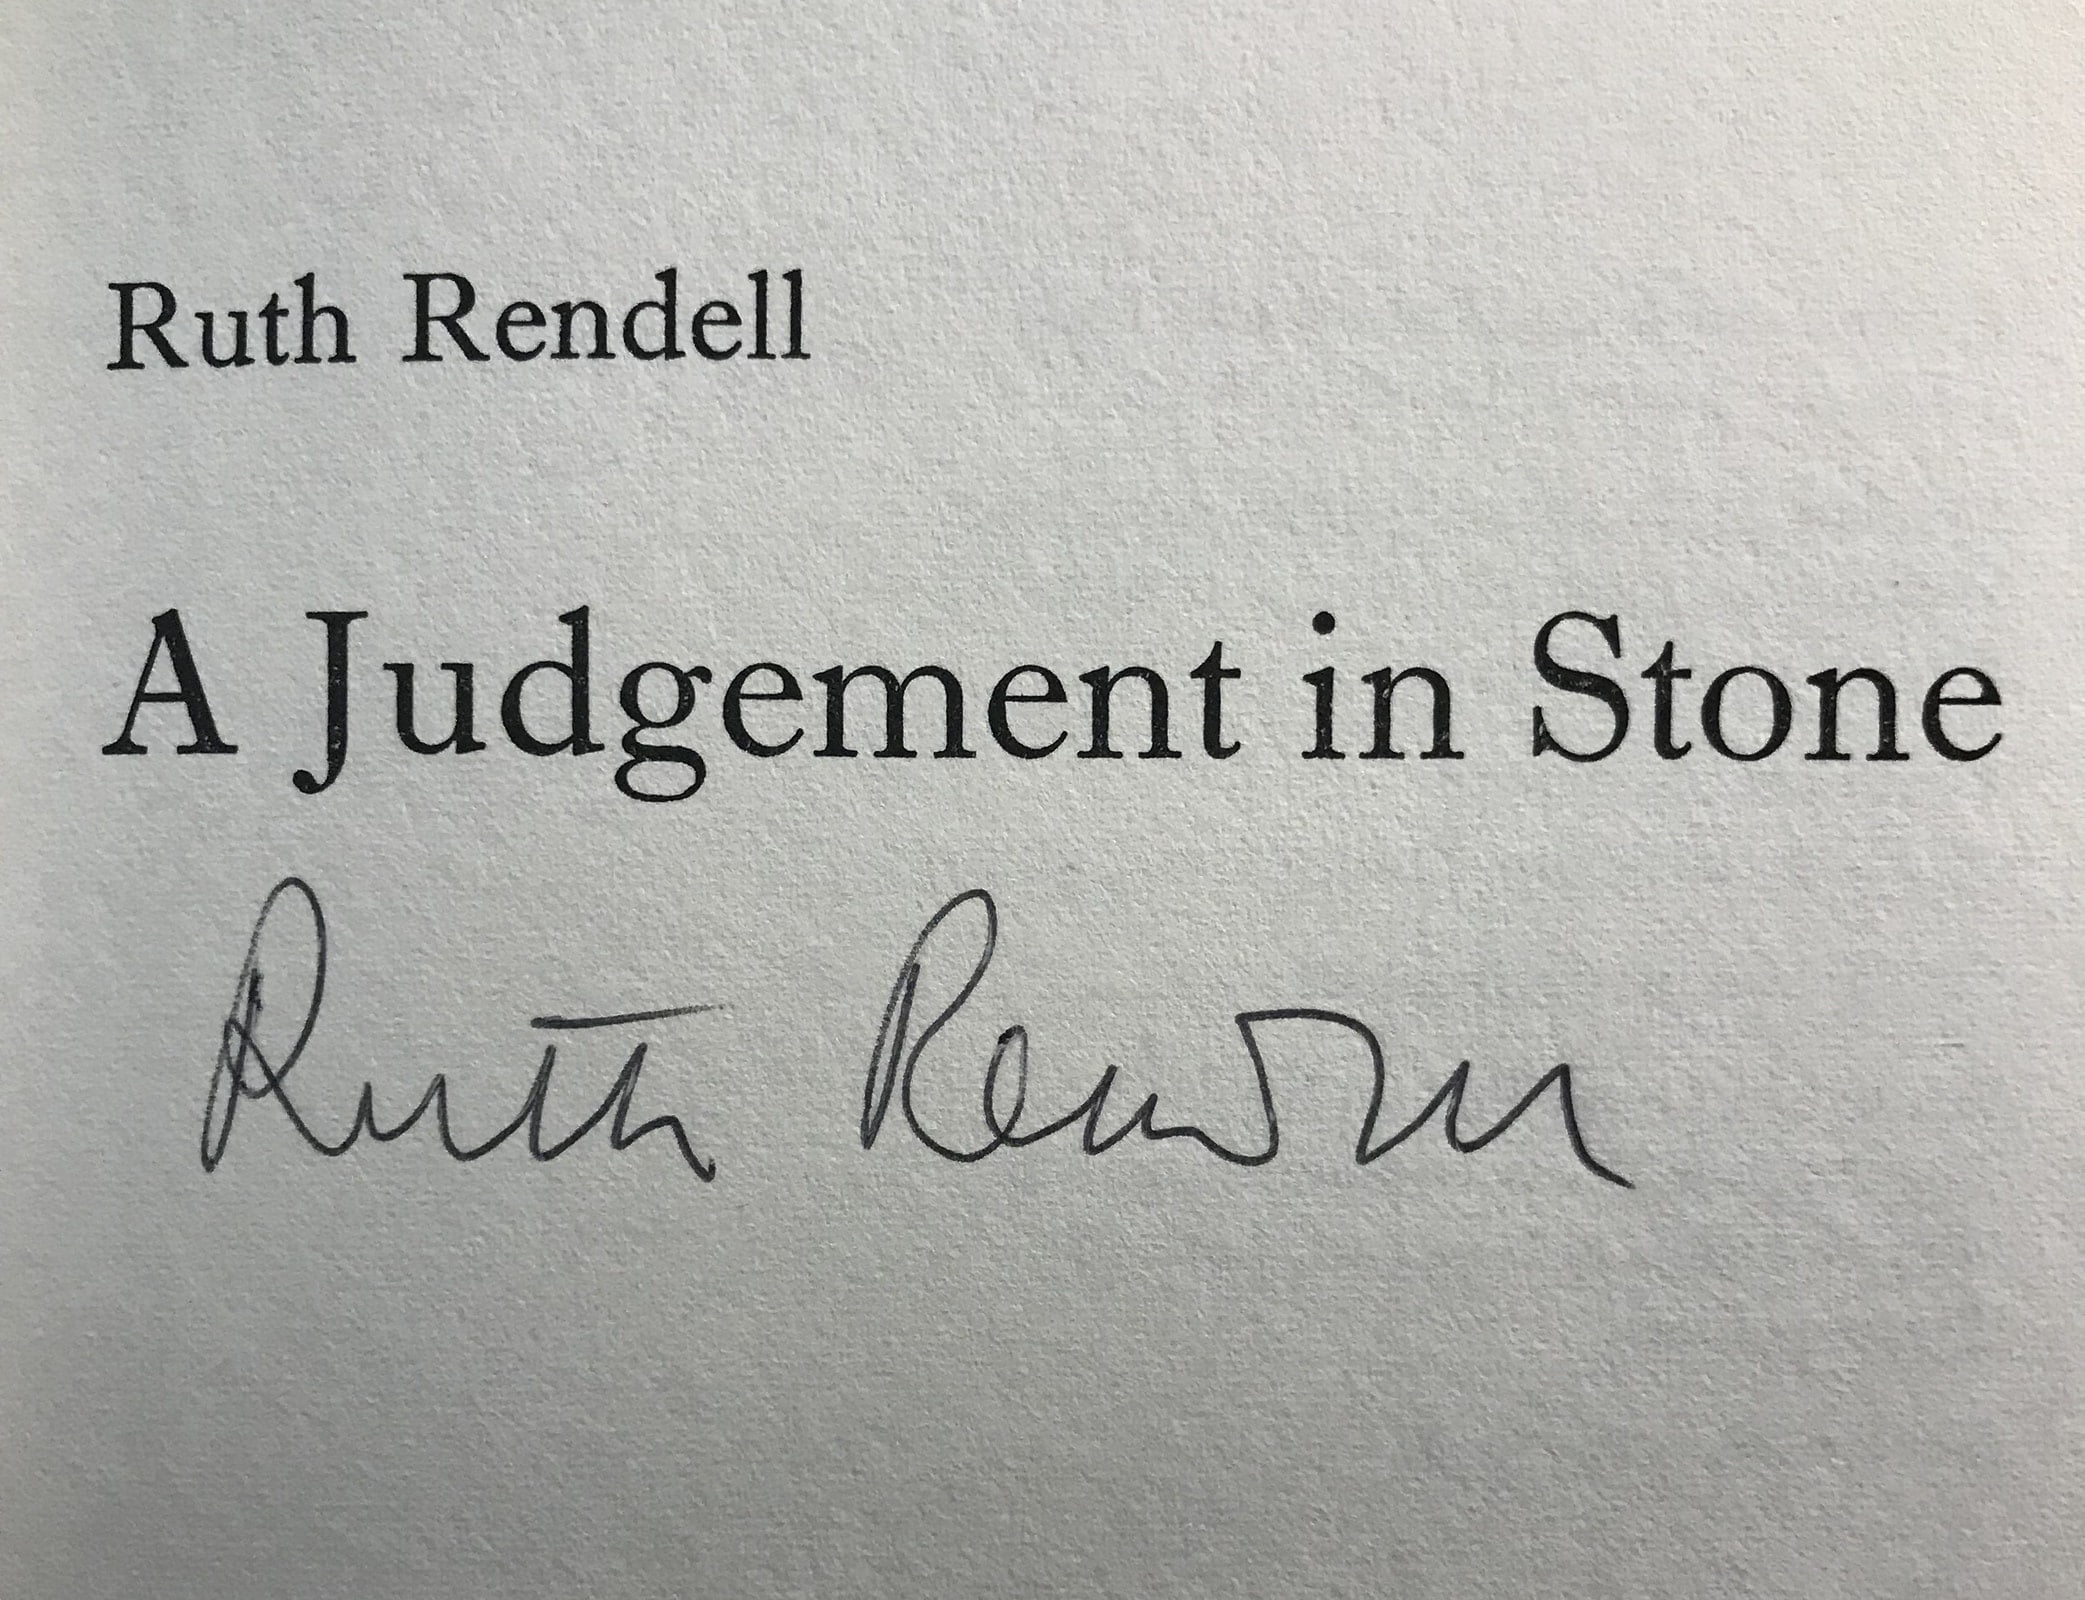 Ruth Rendell
A Judgement in Stone
Ruth Rendell